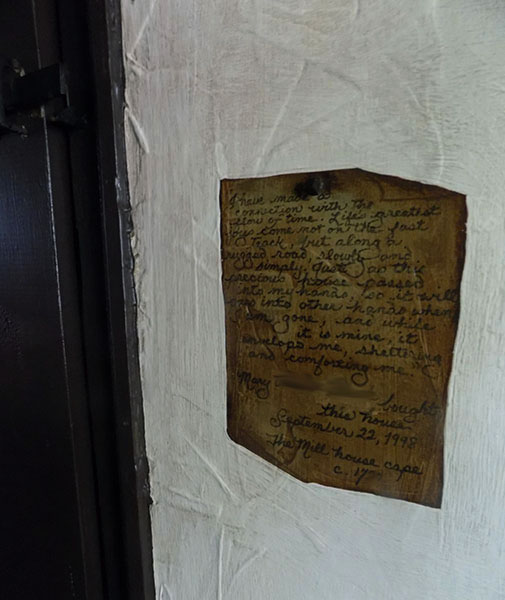 I have made a
connection with the
flow of time. Life's greatest
joys come not on the fast
track, but along a
rugged road, slowly and
simply. Just as this
precious house passed
into my hands, so it will
pass into other hands when
I am gone, and while
it is mine, it
envelops me, sheltering
and comforting me.
Mary
bought
this house
September 22, 1998
The Mill house cape
c. 17